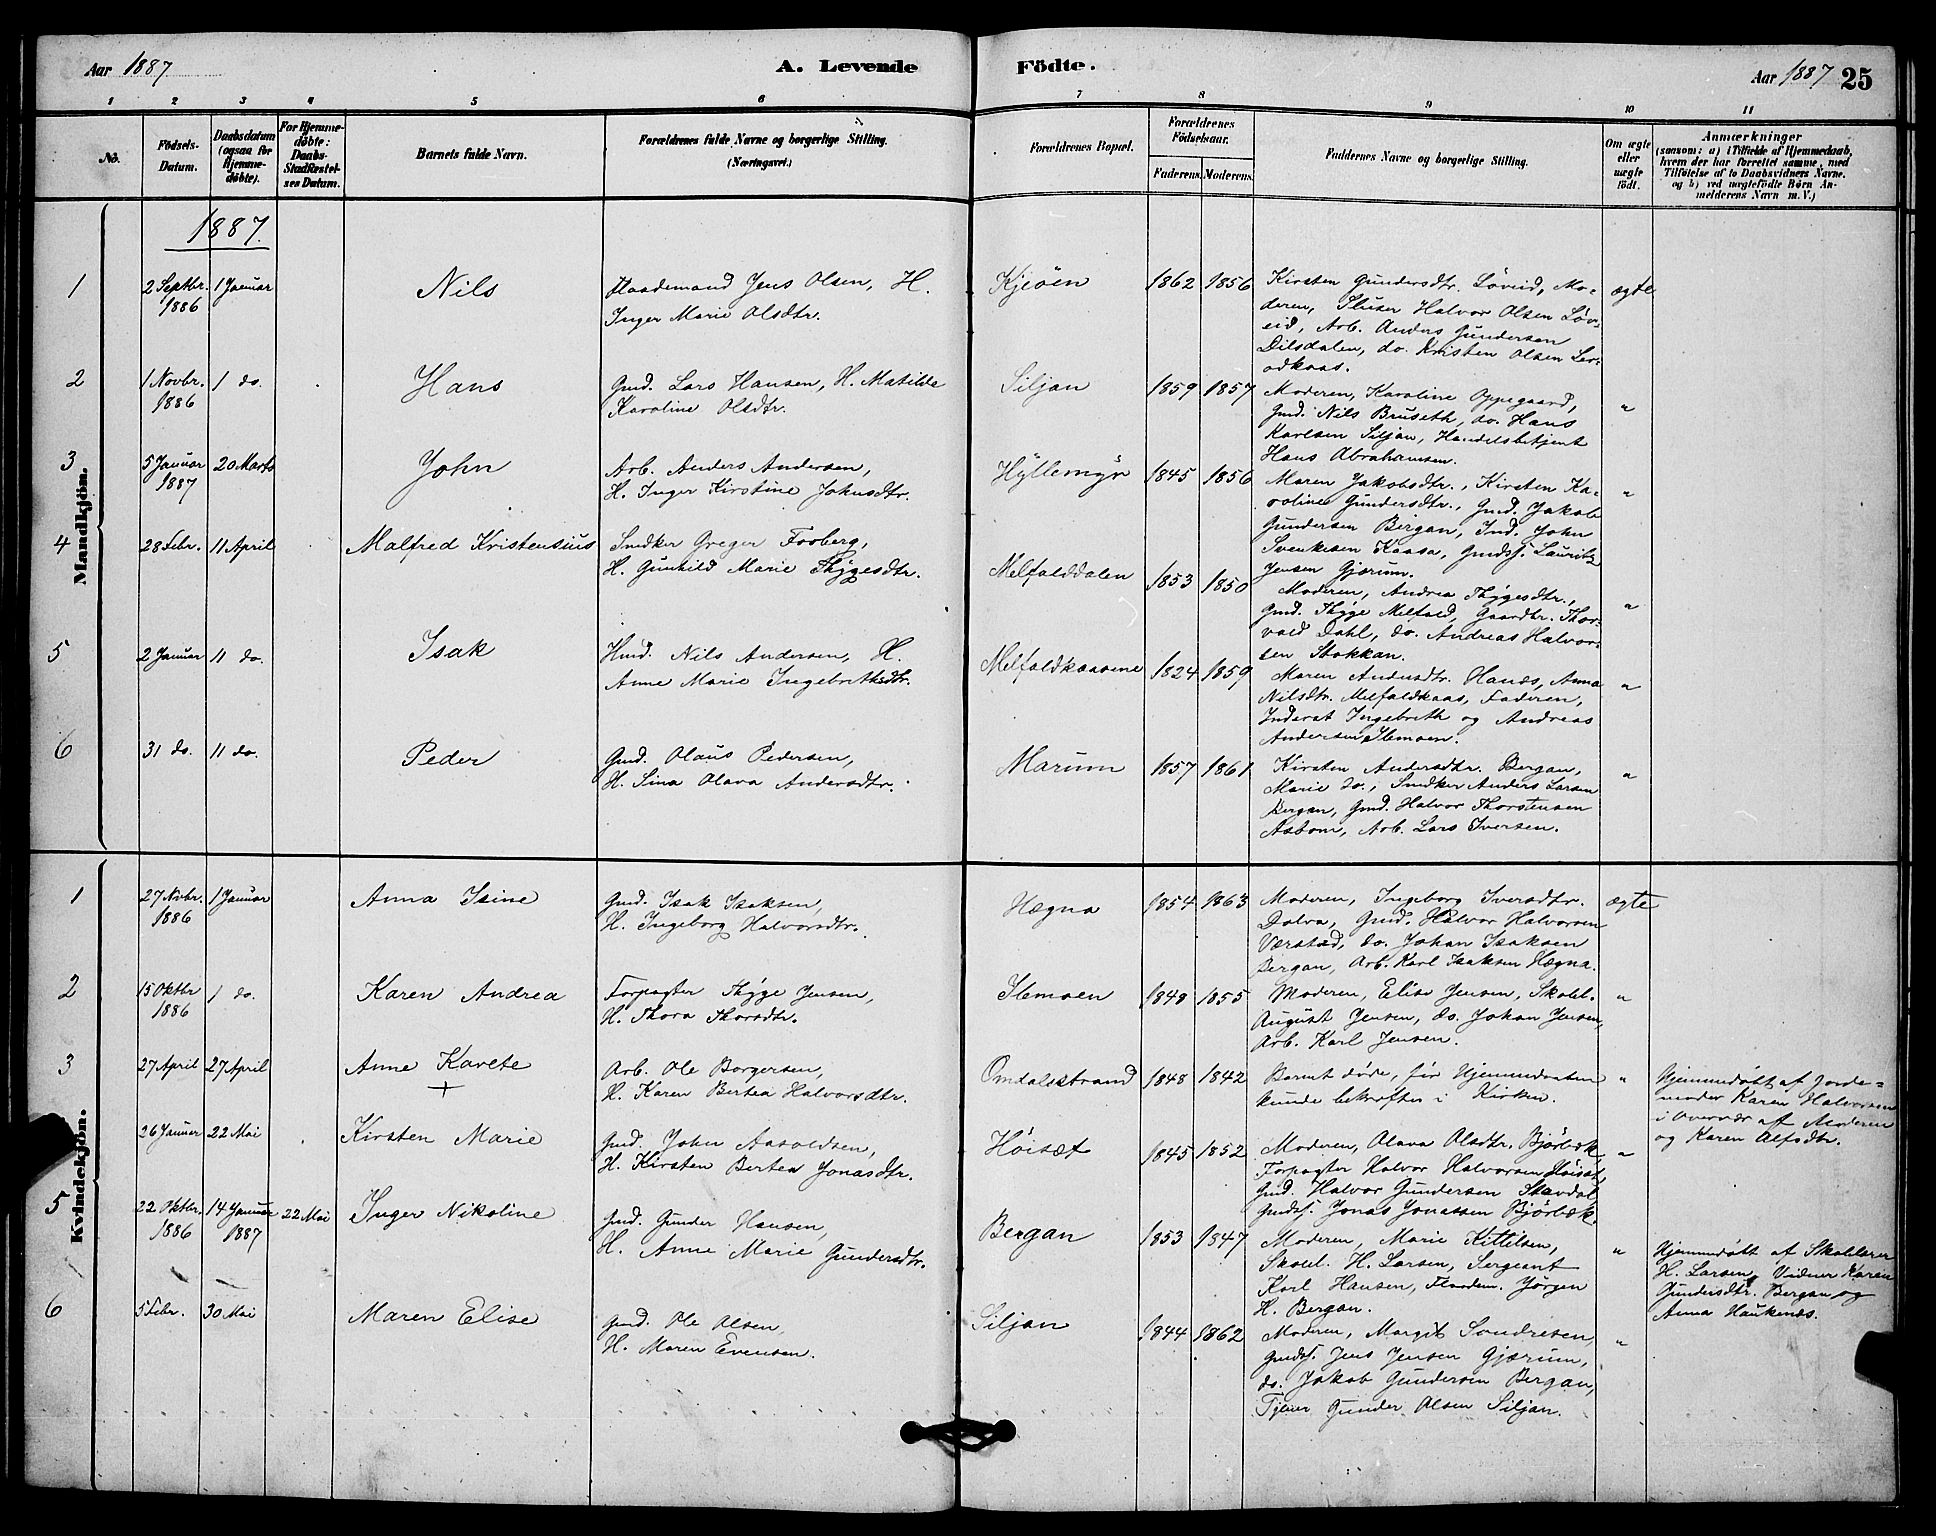 Aar 1887
A. Levende Födte.
Aar 1887 25
1 2 3 4 5 6 7 8 9 10 11
No.
Födsels-Datum.
Daabsdatum (ogsaa for Hjemme-döbte).
For Hjemme-döbte: Daabs-Stadfæstel-ses Datum.
Barnets fulde Navn.
Forældrenes fulde Navne og borgerlige Stilling.
(Næringsvei.)
Forældrenes Bopæl.
Forældrenes Födselsaar.
Faderens. Moderens.
Faddernes Navne og borgerlige Stilling.
Om ægte eller uægte födt.
Anmærkninger
(saasom: a) i Tilfælde af Hjemmedaab,
hvem der har forrettet samme, med
Tilföielse af to Daabsvidners Navne.
og b) ved uægtefödte Börn An-
melderens Navn m. V.)
Mandkjön.
1887.
1 2 Septbr. 1886 1 Januar Nils
Flaademand Jens Olsen, H.
Inger Marie Olsdtr.
Kjeöen 1862 1856
Kirsten Gundersdtr. Löveid, Mo-
deren, Sluser Halvor Olsen Löv-
eid, Arb. Anders Gundersen
Dilsdalen, do. Kristen Olsen
ægte
2 1 Novbr. 1886 1 do. Hans
Gmd. Lars Hansen, H. Matilde
Karoline Olsdtr.
Siljan 1859 1857
Moderen, Karoline Oppegaard,
Gmd. Nils Bruseth, do. Hans
Karlsen Siljan, Handelsbetjent
Hans Abrahamsen.
"
3 5 Januar 1887 20 Marts John
Arb. Anders Andersen,
H. Inger Kirstine Johnsdtr.
Hyllemyr 1845 1856
Maren Jakobsdtr., Kirsten Ka-
roline Gundersdtr., Gmd. Jakob
Gundersen Bergan, Ind. John
Svenkesen Kaasa, Gmdss. Lauritz
Jensen Gjærum.
"
4 28 Febr. 11 April Malfred Kristensius
Snedker Greger Fosberg,
H. Gunhild Marie Thygesdtr.
Melfalddalen 1853 1850
Moderen, Andrea Thygesdtr.,
Gmd. Thyge Melfald, Gaardbr. Thor-
vald Dahl, do. Andreas Halvor-
sen Stokkan.
"
5 2 Januar 11 do. Isak
Hmd. Nils Andersen, H.
Anne Marie Ingebrethsdtr.
Melfaldkaasene 1824 1859
Maren Andersdtr. Hanes, Anna
Nilsdtr. Melfaldkaas, Faderen,
Inderst Ingebreth og Andreas
Andersen Slemoen.
"
6 31 do. 11 do. Peder
Gmd. Olaus Pedersen,
H. Sina Olava Andersdtr.
Marum 1857 1861
Kirsten Andersdtr. Bergan,
Marie do., Snedker Anders Larsen
Bergan, Gmd. Halvor Thorstensen
Aasbom, Arb. Lars Iversen.
"
Kvindekjön.
1 27 Novbr. 1886 1 Januar Anna Isine
Gmd. Isak Isaksen,
H. Ingeborg Halvorsdtr.
Hægna 1854 1863
Moderen, Ingeborg Iversdtr.
Dolva, Gmd. Halvor Halvorsen
Værstad, do. Johan Isaksen
Bergan, Arb. Karl Isaksen Hægna.
ægte
2 15 Oktbr 1886 1 do. Karen Andrea
Forpagter Thyge Jensen,
H. Thora Thorsdtr.
Slemoen 1848 1855
Moderen, Elise Jensen, Skolel.
August Jensen, do. Johan Jensen,
Arb. Karl Jensen.
"
3 27 April 27 April Anne Karete
+
Arb. Ole Borgersen,
H. Karen Bertea Halvorsdtr.
Omdalsstrand 1848 1842
Barnet döde, för Hjemmedaaben
kunde bekræftes i Kirken.
"
Hjemmedöbt af Jorde-
moder Karen Halvorsen
i Overvær af Moderen
og Karen Alfsdtr.
26 Januar 22 Mai Kirsten Marie
Gmd. John Aasoldsen,
H. Kirsten Bertea Jonasdtr.
Höisæt 1845 1852
Moderen, Olava Olsdtr. Bjørbæk,
Forpagter Halvor Halvorsen Höisæt,
Gmd. Halvor Gundersen Stavdal
Gmdss. Jonas Jonassen Bjørbæk.
"
5 22 Oktbr. 1886 14 Januar 1887 22 Mai Inger Nikoline
Gmd. Gunder Hansen,
H. Anne Marie Gundersdtr.
Bergan 1853 1847
Moderen, Marie Kittilsen,
Skolel. H. Larsen, Sergeant
Karl Hansen, Flaadem. Jörgen
H. Bergan.
"
Hjemmedöbt af Skolelærer
H. Larsen, Vidner Karen
Gundersdtr. Bergan og
Anna Haukenæs.
6 5 Febr. 30 Mai Maren Elise
Gmd. Ole Olsen,
H. Maren Evensen.
Siljan 1844 1862
Moderen, Margit Sondresen,
Gmdss. Jens Jensen Gjærum,
do. Jakob Gundersen Bergan,
Tjener Gunder Olsen Siljan.
"